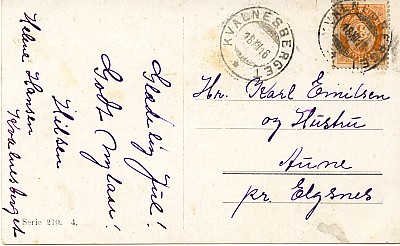 KVABNESBERGET
18 XII 16
KVABNESBERGET
Glædelig Jul!
Godt Nytaar!
Hilsen
Helene Hansen
Kvabnesberget
Hr. Karl Emilsen
og Hustru
Aune
pr. Elgsnes
Serie 210. 4.